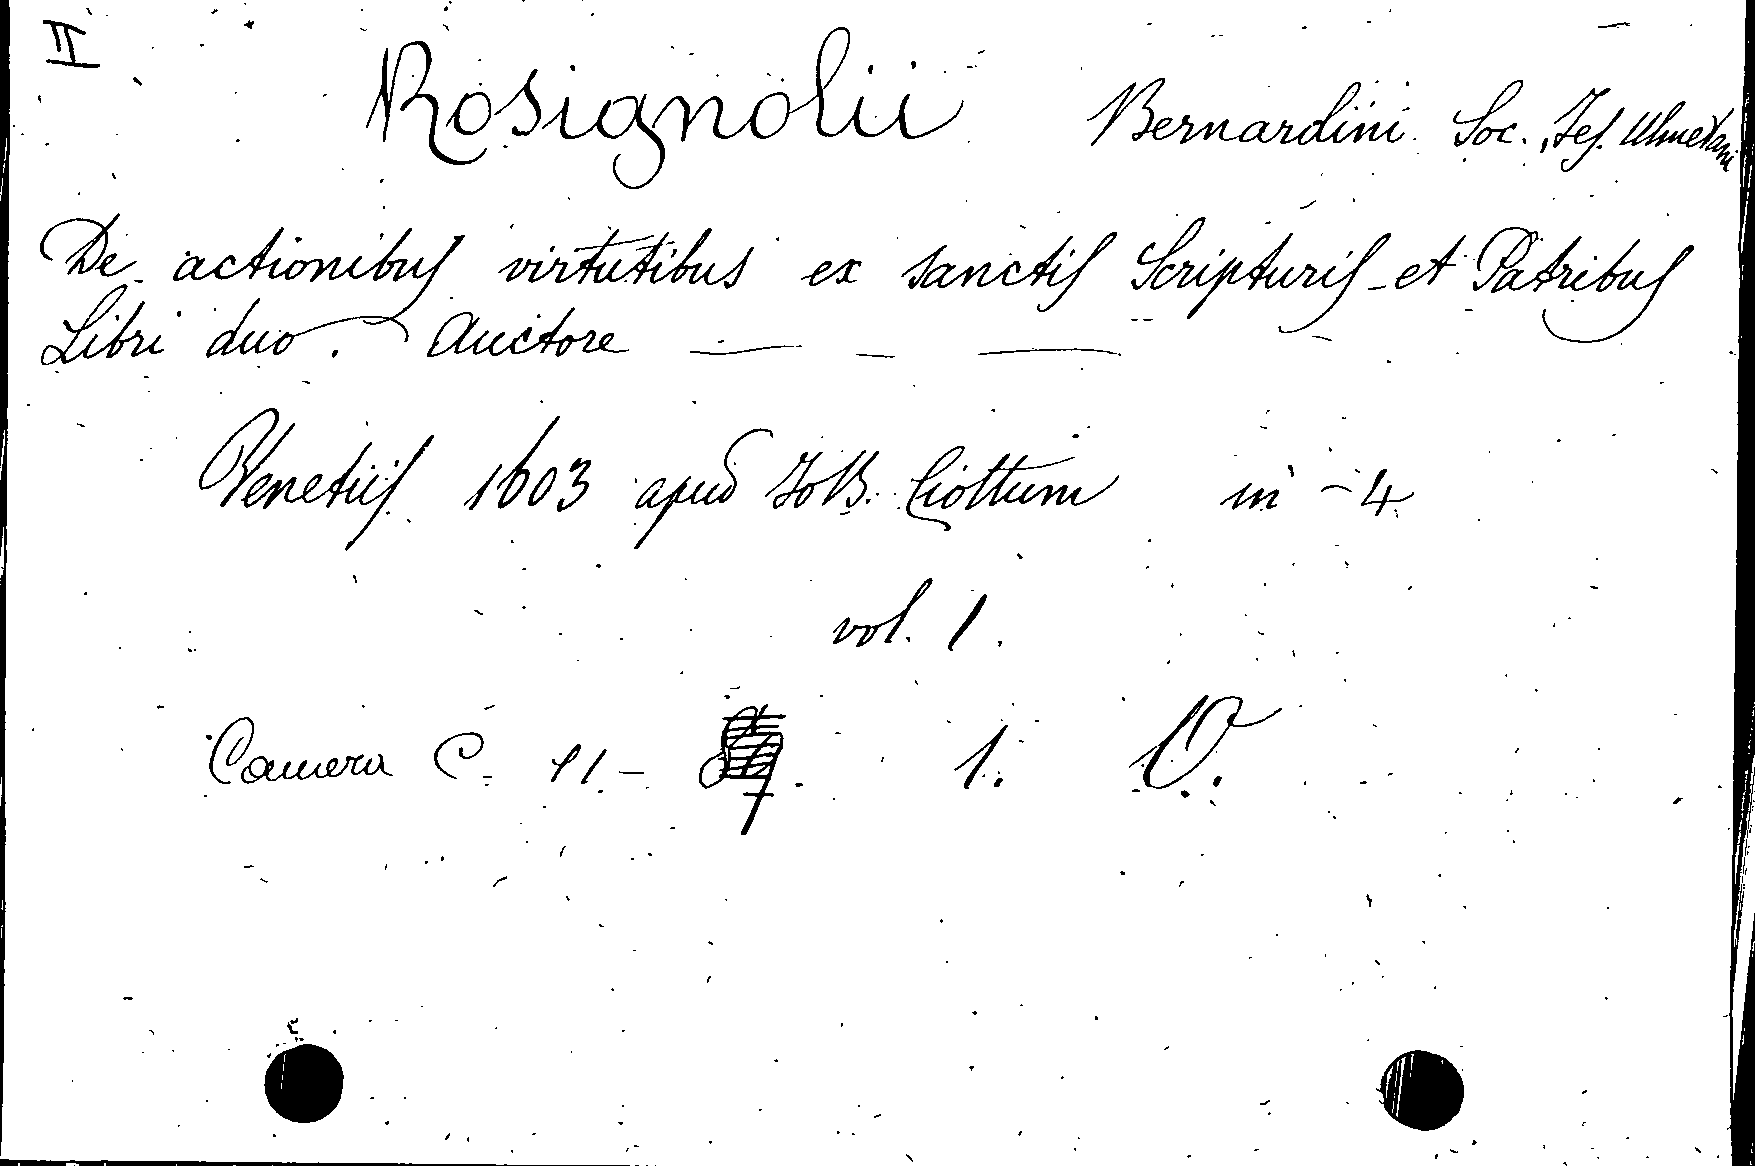 II
Rosignolii Bernardini Soc. Jes. Ulmetani
De actionibus virtutibus ex sanctis Scripturis et Patribus
Libri duo. Auctore — — —
Venetiis 1603 apud Jo B. Ciottum in -4
vol. 1.
Camera C. 11 - 1. O.